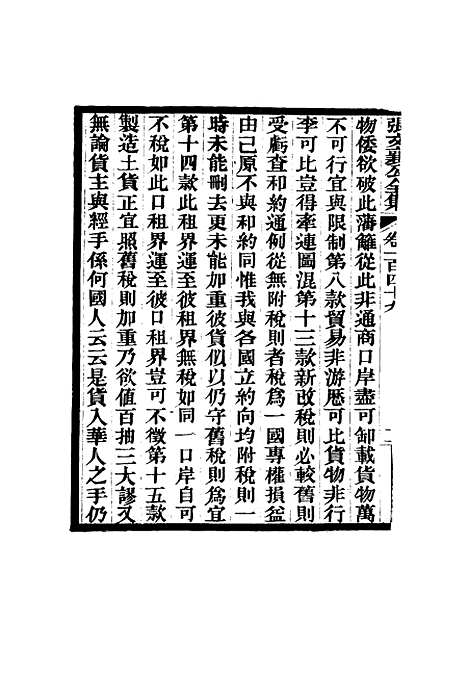 張文襄公全集 卷一百四十九 二
物倭欲破此藩籬從此非通商口岸盡可卸載貨物萬
不可行宜與限制第八款貿易非游歷可比貨物非行
李可比豈得牽連圖混第十三款新改稅則必較舊則
受虧查和約通例從無附稅則者稅爲一國專權損益
由己原不與和約同惟我與各國立約向均附稅則一
時未能刪去更未能加重彼貨似以仍守舊稅則爲宜
第十四款此租界運至彼租界無稅如同一口岸自可
不稅如此口租界運至彼口租界豈可不徵第十五款
製造土貨正宜照舊稅則加重乃欲值百抽三大謬又
無論貨主與經手係何國人云云是貨入華人之手仍